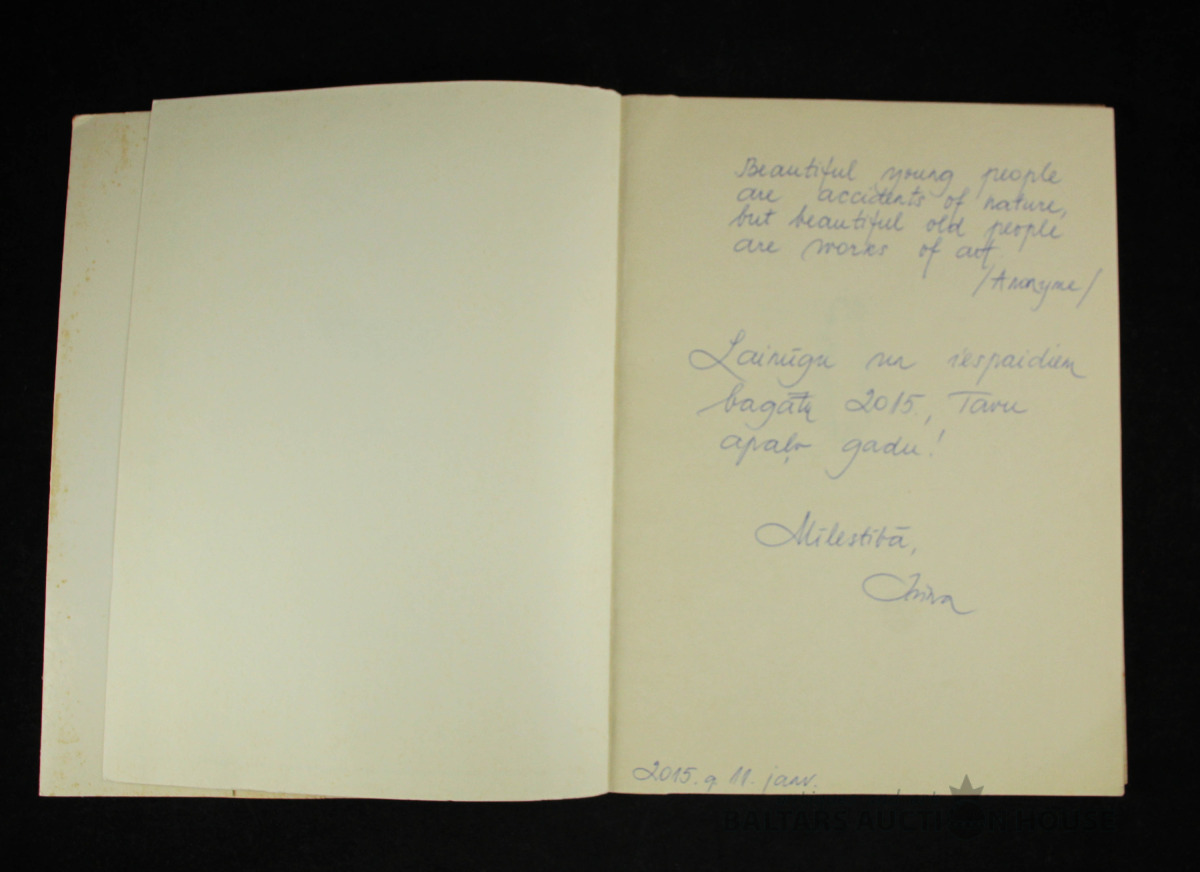 Beautiful young people
are accidents of nature,
but beautiful old people
are works of art
/Anonyme/
Laimīgu un iespaidiem
bagātu 2015., Tavu
apaļo gadu!
Mīlestībā,
2015. g 11. janv.
BALTARS AUCTION HOUSE